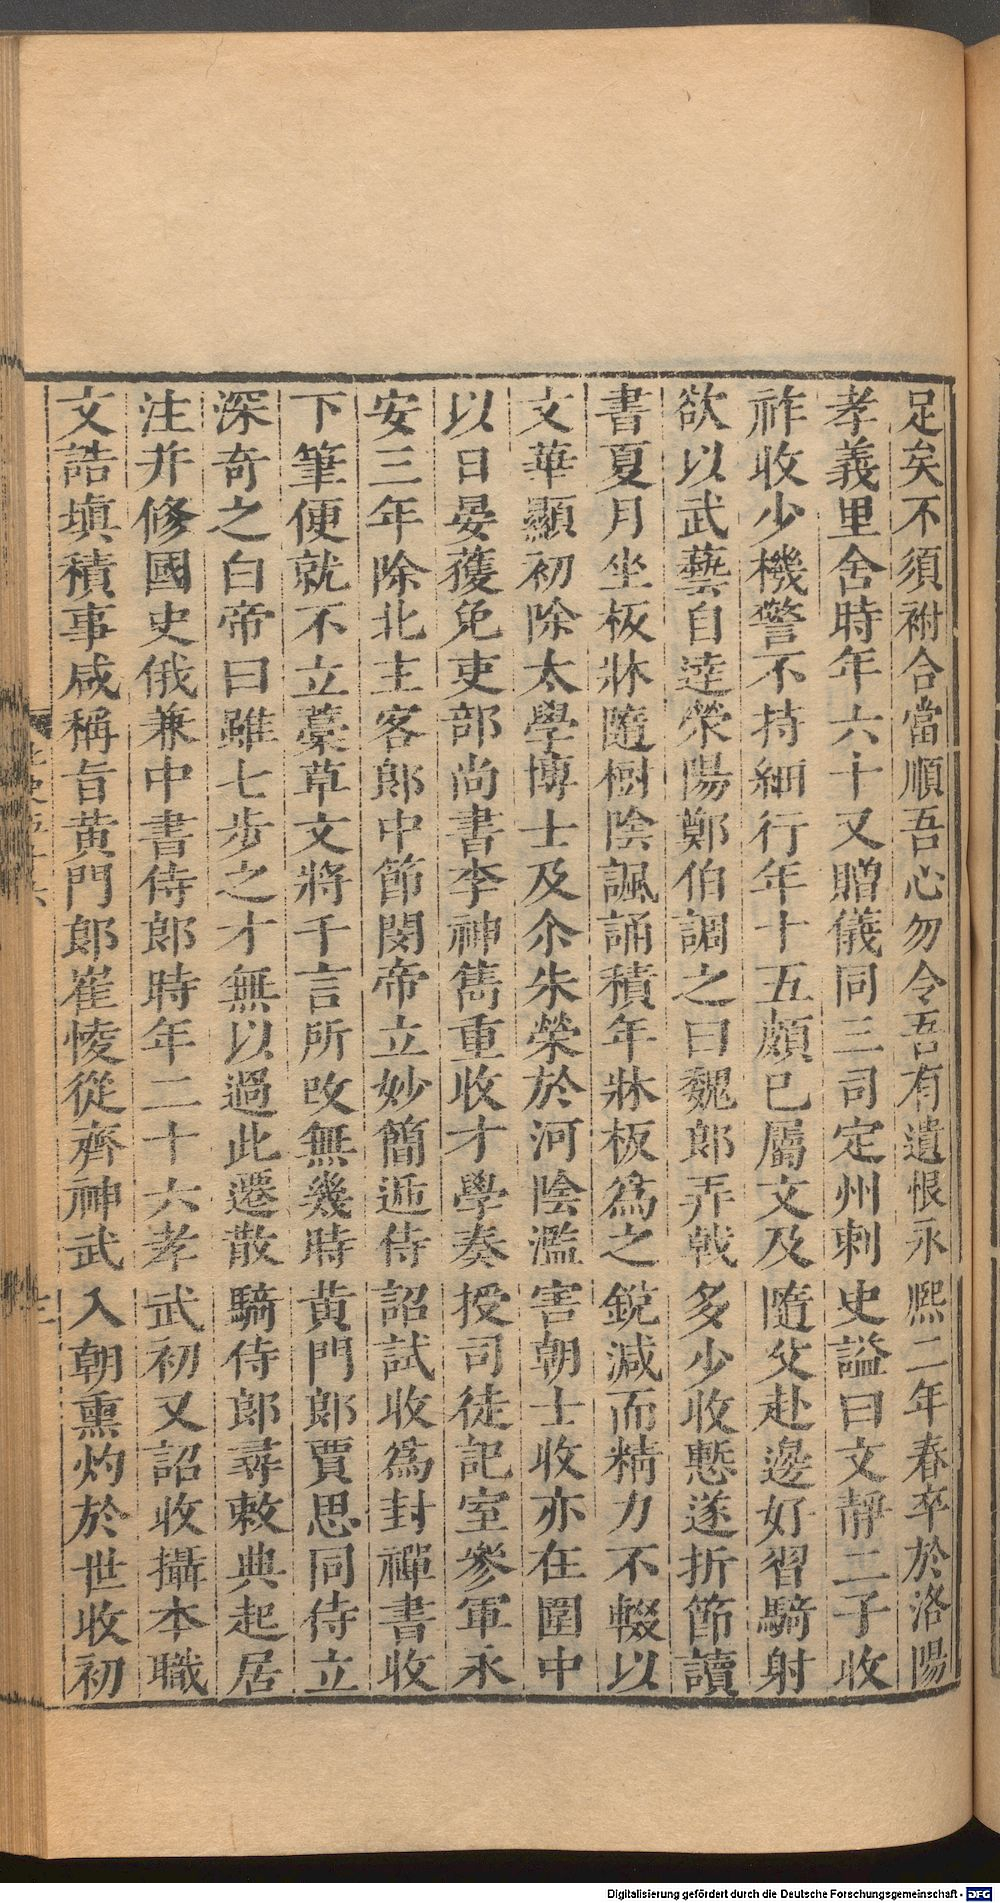 足矣不須祔合當順吾心勿令吾有遺恨永熙二年春卒於洛陽
孝義里舍時年六十又贈儀同三司定州刺史諡曰文靜二子收
祚收少機警不持細行年十五頗已屬文及隨父赴邊好習騎射
欲以武藝自達滎陽鄭伯調之曰魏郎弄戟多少收慙遂折節讀
書夏月坐板牀隨樹陰諷誦積年牀板爲之銳減而精力不輟以
文華顯初除太學博士及尒朱榮於河陰濫害朝士收亦在圍中
以日晏獲免吏部尚書李神儁重收才學奏授司徒記室參軍永
安三年除北主客郎中節閔帝立妙簡近侍詔試收爲封禪書收
下筆便就不立藁草文將千言所改無幾時黃門郎賈思同侍立
深奇之白帝曰雖七步之才無以過此遷散騎侍郎尋敕典起居
注并修國史俄兼中書侍郎時年二十六孝武初又詔收攝本職
文誥填積事咸稱旨黃門郎崔㥄從齊神武入朝熏灼於世收初
三
Digitalisierung gefördert durch die Deutsche Forschungsgemeinschaft - DFG